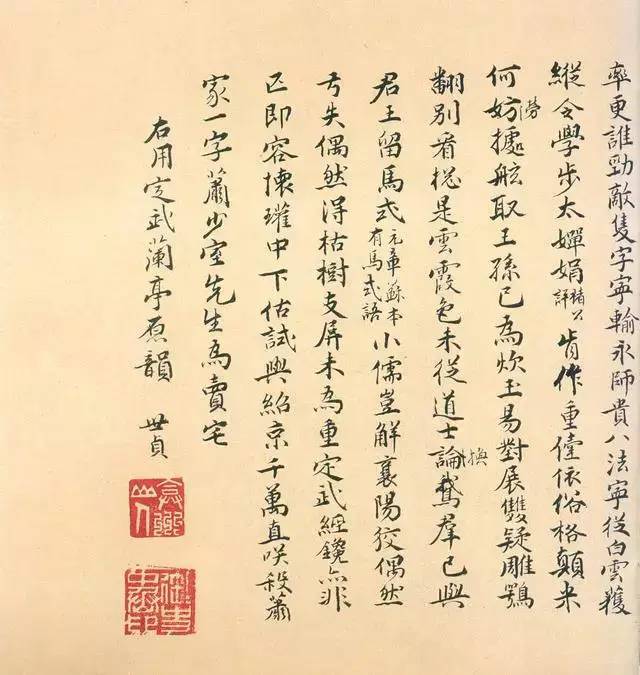 率更誰勁敵隻字寧輸永師貴八法寧從白雲獲
縱令學步太嬋娟褚公評肯作重儓依俗格顛來
何妨勞據舷取王孫已為炊玉易對展雙疑雕鶚
翻別看揔是雲霞色未從道士論換鵞羣已與
君王留馬式元章蘇本有馬式語小儒豈解襄陽狡偶然
亏失偶然得枯樹支屏未為重定武經鑱亦非
匹即容懷璀中下估試與紹京千萬直咲殺蕭
家一字蕭少室先生為賣宅
右用定武蘭亭原韻 世貞